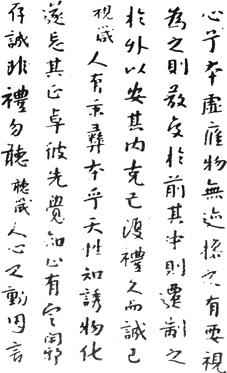 心乎本虛應物無迹操之有要視
為之則蔽交於前其中則遷制之
於外以安其內克己復禮久而誠已
視箴人有秉彝本乎天性知誘物化
遂忘其正卓彼先覺知止有定閑邪
存誠非禮勿聽聽箴人心之動因言